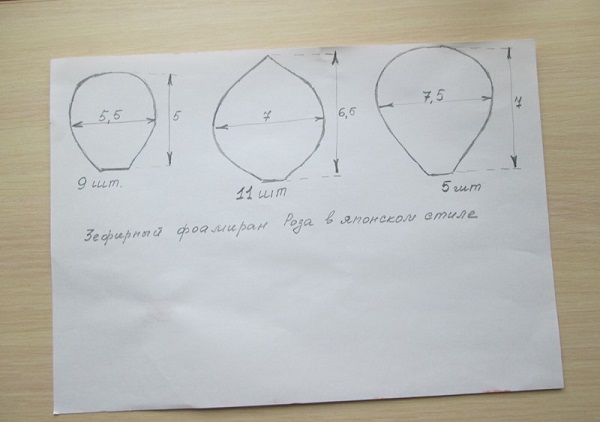 5,5
5
7
6,5
7,5
7
9 шт.
11 шт
5 шт
Зефирный фоамиран Роза в японском стиле